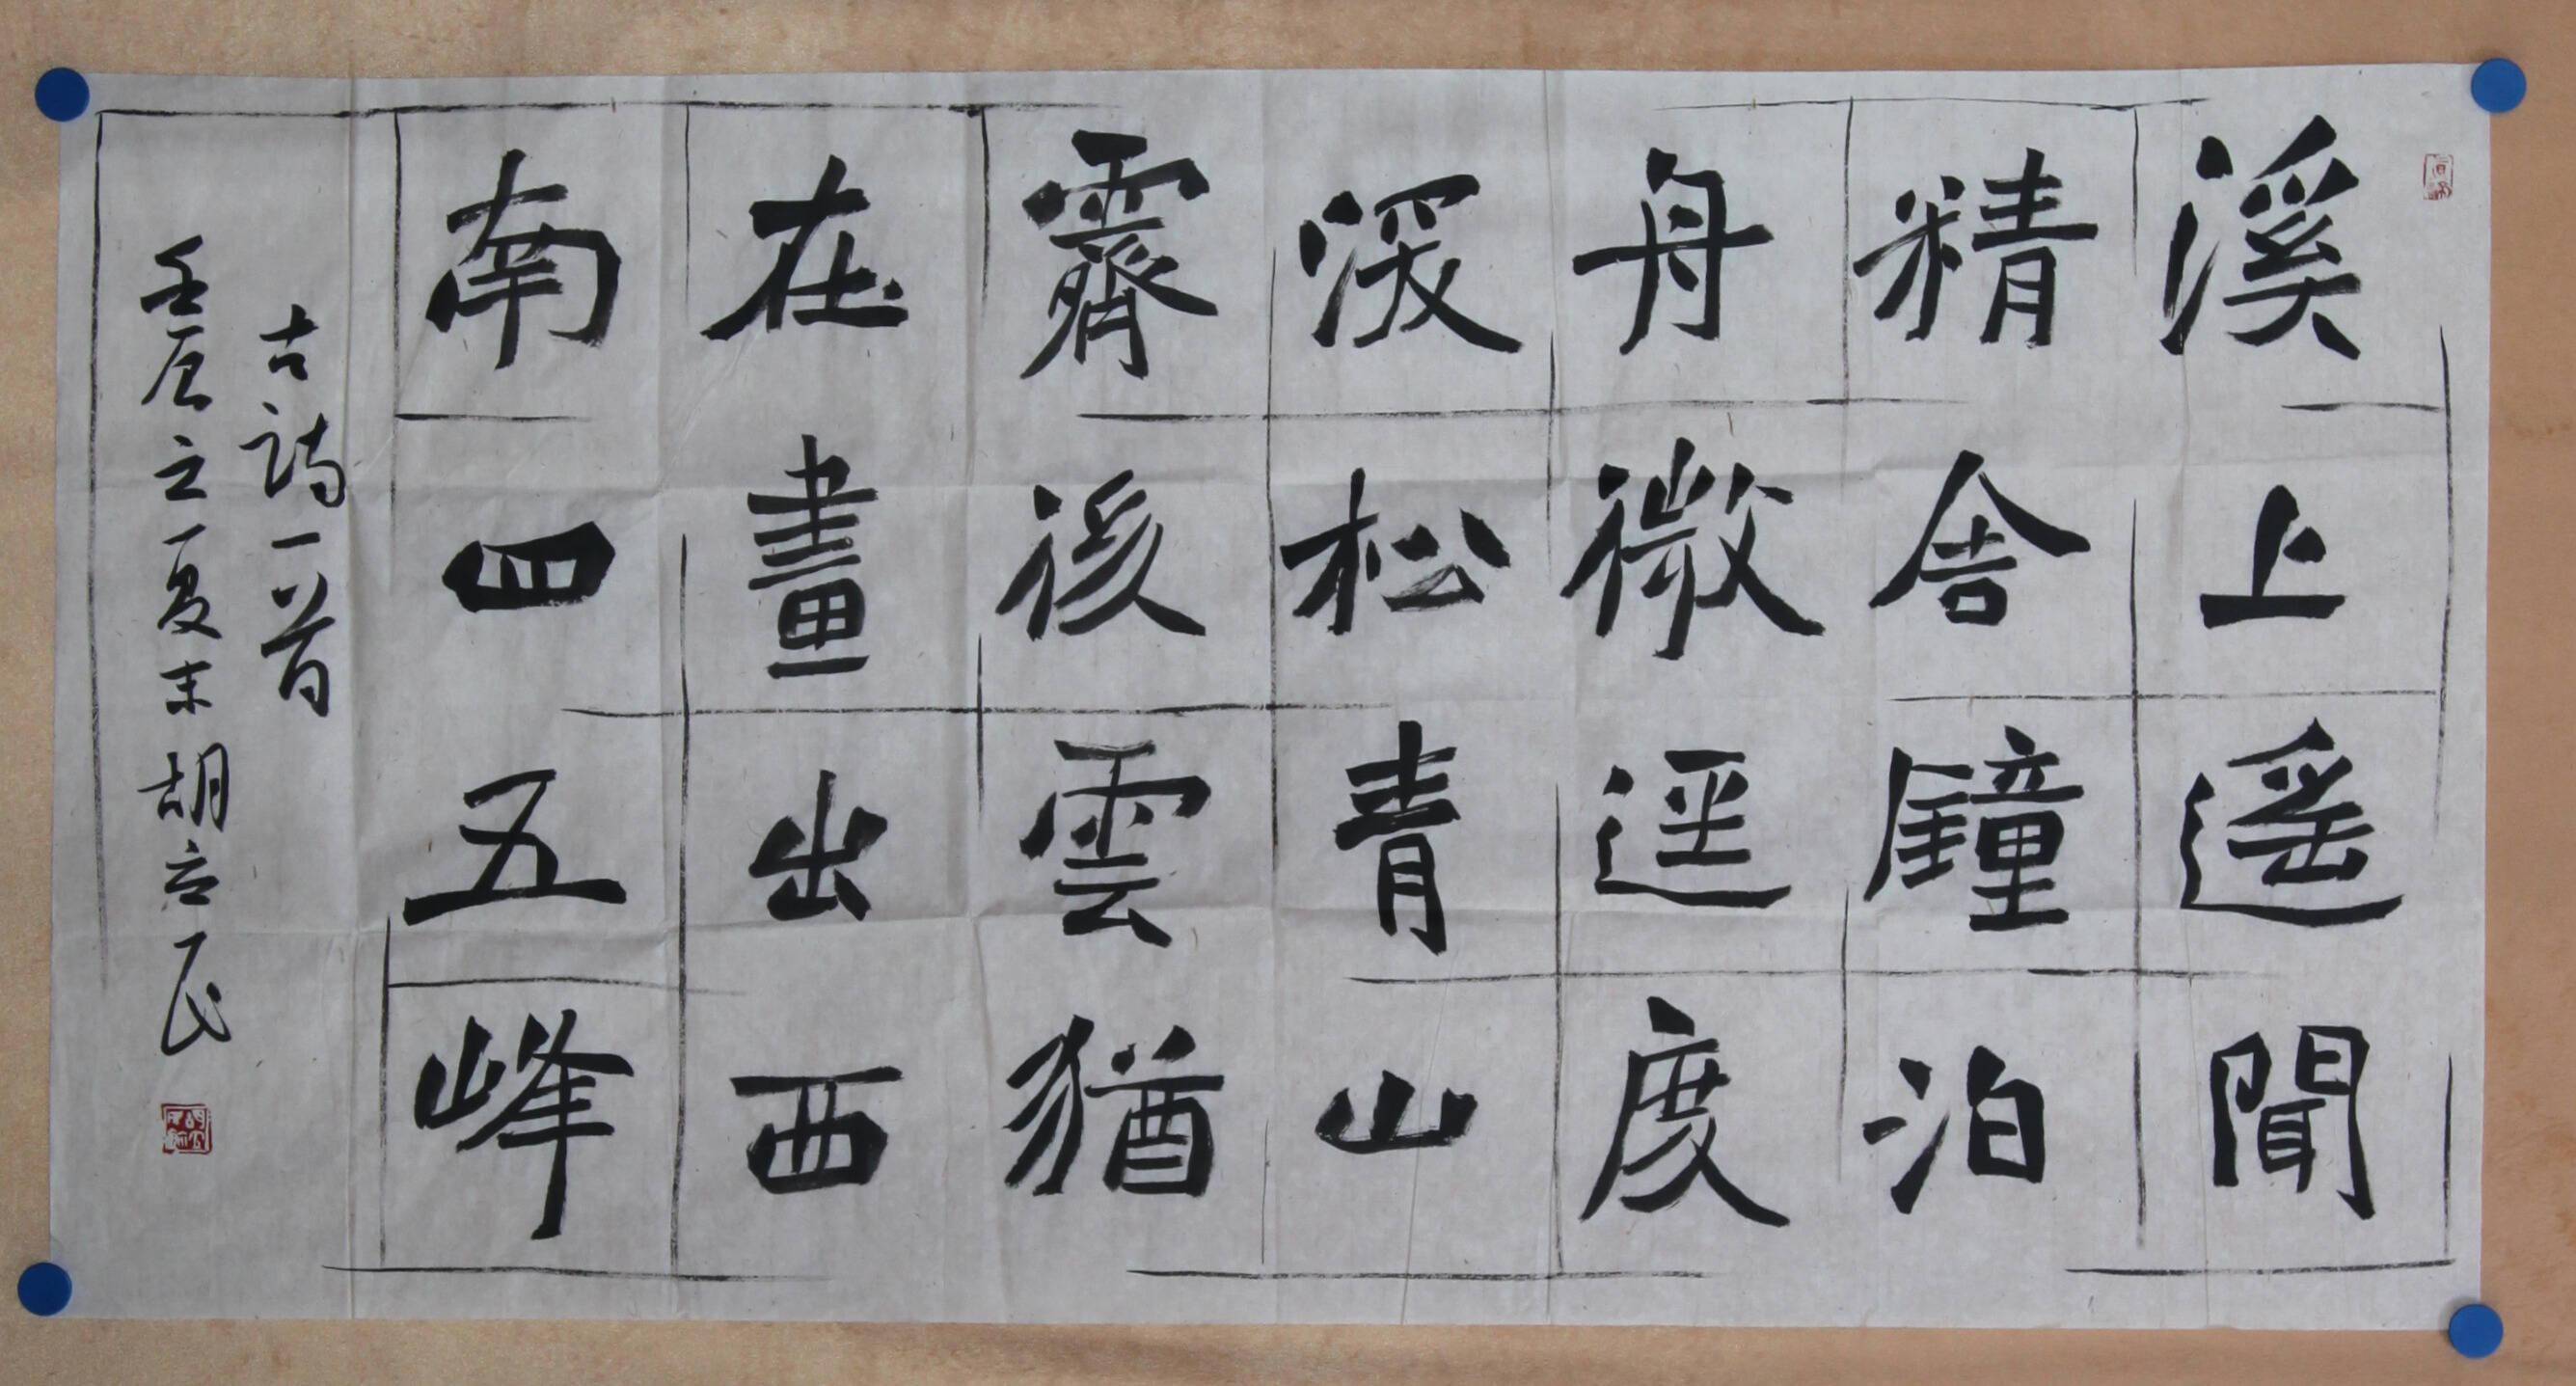 溪上遙聞
精舍鐘泊
舟微逕度
深松青山
霽後雲猶
在畫出西
南四五峰
古詩一首
壬辰之夏末胡立民